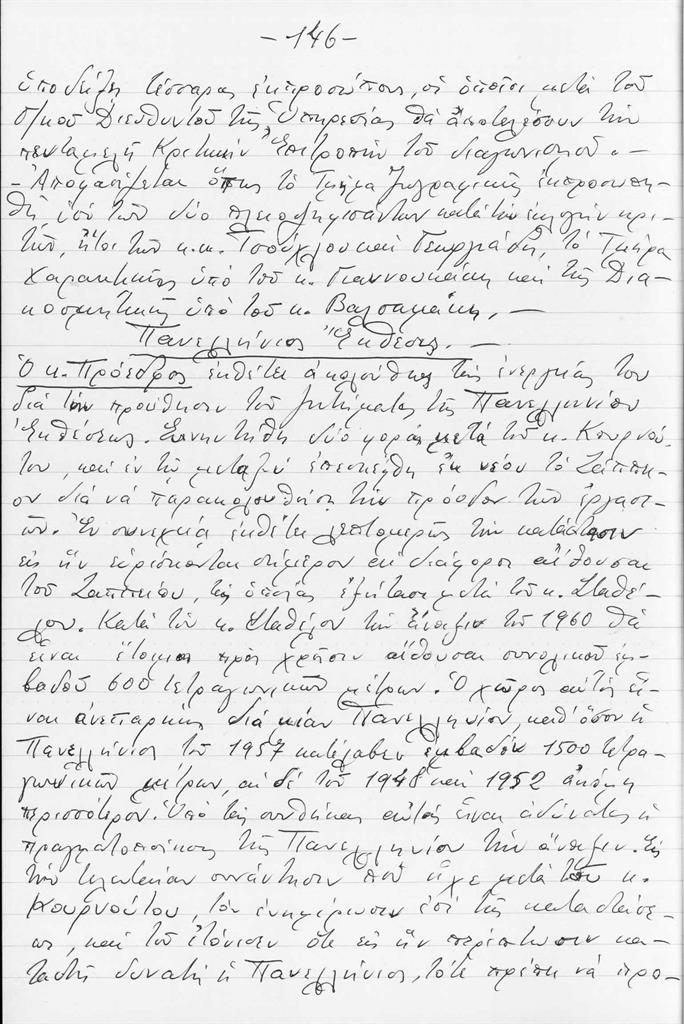 -146-
ὑποδείξη τέσσαρας ἐκπροσώπους, οἱ ὁποῖοι μετά τοῦ
Δ/κοῦ Διευθυντοῦ τῆς Ὑπηρεσίας θά ἀποτελέσουν τήν
πενταμελῆ Κριτικήν Ἐπιτροπήν τοῦ διαγωνισμοῦ. —
- Ἀποφασίζεται ὅπως τό Τμῆμα Ζωγραφικῆς ἐκπροσωπη-
θῆ ὑπό τῶν δύο πλειοψηφισάντων κατά τήν ἐκλογήν κρι-
τῶν, ἤτοι τῶν κ.κ. Τσούχλου καί Γεωργιάδη, τό Τμῆμα
Χαρακτικῆς ὑπό τοῦ κ. Γιαννουκάκη καί τῆς Δια-
κοσμητικῆς ὑπό τοῦ κ. Βαλσαμάκη. —
Πανελλήνιος Ἔκθεσις. —
Ὁ κ. Πρόεδρος ἐκθέτει ἀκολούθως τάς ἐνεργείας του
διά τήν προώθησιν τοῦ ζητήματος τῆς Πανελληνίου
Ἐκθέσεως. Συνηντήθη δύο φοράς μετά τοῦ κ. Κουρνού-
του, καί ἐν τῷ μεταξύ ἐπεσκέφθη ἐκ νέου τό Ζάππει-
ον διά νά παρακολουθήση τήν πρόοδον τῶν ἐργασι-
ῶν. Ἐν συνεχείᾳ ἐκθέτει λεπτομερῶς τήν κατάστασιν
εἰς ἥν εὑρίσκονται σήμερον αἱ διάφοροι αἴθουσαι
τοῦ Ζαππείου, τάς ὁποίας ἐξήτασε μετά τοῦ κ. Σταθέ-
λου. Κατά τόν κ. Σταθέλον τήν ἄνοιξιν τοῦ 1960 θά
εἶναι ἕτοιμοι πρός χρῆσιν αἴθουσαι συνολικοῦ ἐμ-
βαδοῦ 600 τετραγωνικῶν μέτρων. Ὁ χῶρος αὐτός εἶ-
ναι ἀνεπαρκής διά μίαν Πανελλήνιον, καθ' ὅσον ἡ
Πανελλήνιος τοῦ 1957 κατέλαβεν ἐμβαδόν 1500 τετρα-
γωνικῶν μέτρων, αἱ δέ τοῦ 1948 καί 1952 ἀκόμη
περισσότερον. Ὑπό τάς συνθήκας αὐτάς εἶναι ἀδύνατος ἡ
πραγματοποίησις τῆς Πανελληνίου τήν ἄνοιξιν. Εἰς
τήν τελευταίαν συνάντησιν πού εἶχε μετά τοῦ κ.
Κουρνούτου, τόν ἐνημέρωσεν ἐπί τῆς καταστάσε-
ως, καί τοῦ ἐτόνισεν ὅτι εἰς ἥν περίπτωσιν κα-
ταστῆ δυνατή ἡ Πανελλήνιος, τότε πρέπει νά προ-